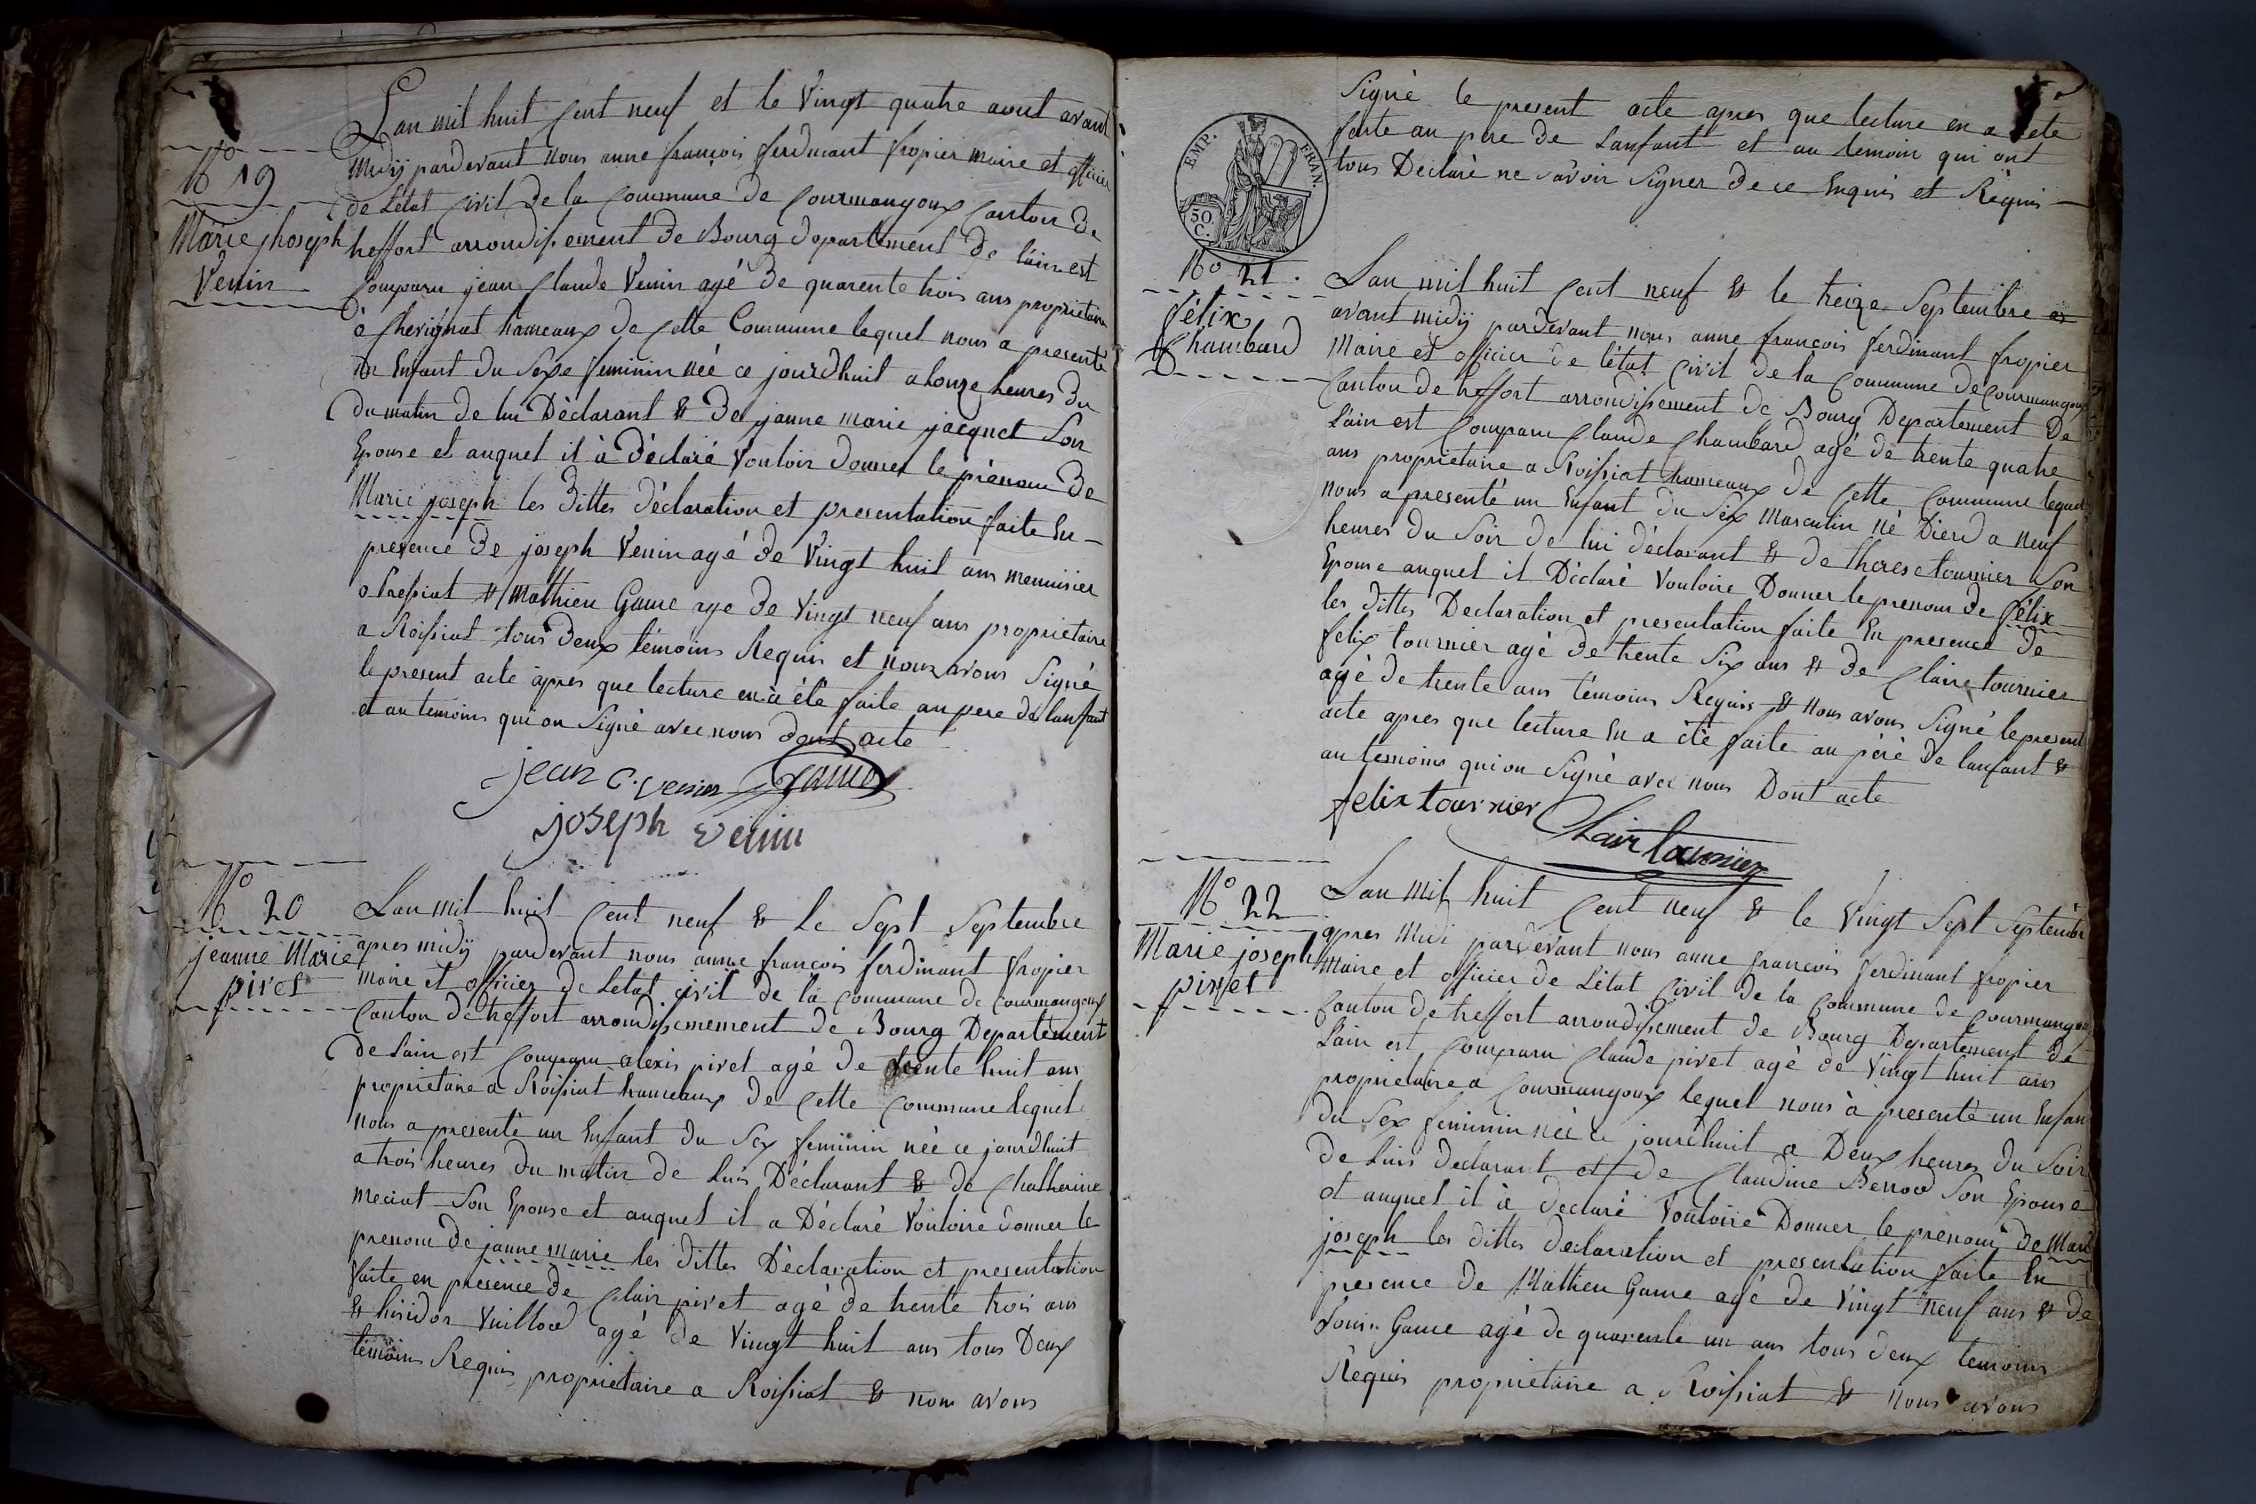 Lan mil huit Cent neuf et le Vingt quatre aout avant
midÿ pardevant nous anne françois ferdinant fropier maire et officier
de Létat Civil de la Commune de Courmangoux Canton de
treffort arrondissement de Bourg departement de lain est
Comparu jean Claude Venin agé de quarente trois ans proprietaire
à Chevignat hameaux de Cette Commune lequel nous a presenté
un Enfant du Sexe feminin née ce jourdhuit a honze heures du
du matin de lui Déclarant & de janne marie jacquet Son
Epouse et auquel il à déclaré Vouloir donner le prénom de
Marie joseph les dittes déclaration et presentation faite En
presence de joseph Venin agé de Vingt huit ans menuisier
a Pressiat & Mathieu Game age de Vingt neuf ans proprietaire
a Roissiat tous deux témoins Requis et nous avons Signé
le present acte àpres que lecture en à été faite au pere de lanfant
et au temoins qui on Signé avec nous dont acte
jean C. Venin Game
joseph Venin
N° 19
Marie jhoseph
Venin
N° 20
jeanne Marie
pivet
Lan mil huit Cent neuf & Le Sept Septembre
apres midÿ pardevant nous anne françois ferdinant fropier
maire et officier de Letat civil de la Commune de Courmangoux
Canton de treffort arrondissemement de Bourg Departement
de Lain est Comparu alexis pivet agé de trente huit ans
proprietaire a Roissiat hameaux de Cette Commune lequel
nous a presenté un Enfant du Sex feminin née ce jourdhuit
a trois heures du matin de Luis Déclarant & de Chatherine
meciat Son Epouse et auquel il a Déclaré Vouloire donner le
prenom de janne marie les dittes Dèclaration et presentation
faite en presence de Clair pivet agé de trente trois ans
& hisidor Vuillod agé de Vingt huit ans tous Deux
témoins Requis proprietaire a Roissiat & nous avons
EMP. FRAN.
50
C.
Signé le present acte apres que lecture en a été
faite au pere de Lanfant et au temoin qui ont
tous Déclaré ne savoir Signer de ce Enquis et Réquis
N° 21.
félix
Chambard
Lan mil huit Cent neuf & le treize Septembre
avant midÿ pardevant nous anne françois ferdinant fropier
Maire et officier de létat Civil de la Commune de Courmangoux
Canton de treffort arrondissement de Bourg Departement De
Lain est Comparu Claude Chambard agé de trente quatre
ans proprietaire a Roissiat hameaux de Cette Commune lequel
nous a presenté un Enfant du Sex Masculin né Dierd a neuf
heures du Soir de lui déclarant & de therese tournier Son
Epouse auquel il Déclaré Vouloire Donner le prenom de félix
les dittes Declaration et presentation faite En presence de
felix tournier agé de trente Six ans & de Claire tournier
agé de trente ans témoins Requis & Nous avons Signé le present
acte apres que lecture En a été faite au péré de lanfant &
au temoins qui on Signè avec nous Dont acte
felix tournier Clair tournier
N° 22
Marie joseph
pivet
Lan mil huit Cent neuf & le Vingt Sept Septembr
apres Midi pardevant nous anne francois ferdinant fropier
Maire et officier de Létat Civil de la Commune de Courmangoux
Canton de treffort arrondissement de Bourg Departement de
Lain est Comparu Claude pivet agé de Vingt huit ans
proprietaire a Courmangoux lequel nous à presenté un Enfan
du Sex feminin née ce jourdhuit a Deux heures du Soir
de Luis declarant et de Claudine Berrod Son Epouse
et auquel il à declaré Vouloire Donner le prenom de Marie
joseph les dittes declaration et presentation faite En
presence de Mathieu Game agé de Vingt neuf ans & de
Louis Game agé de quarente un ans tous deux temoins
Requis proprietaire a Roissiat & nous avons